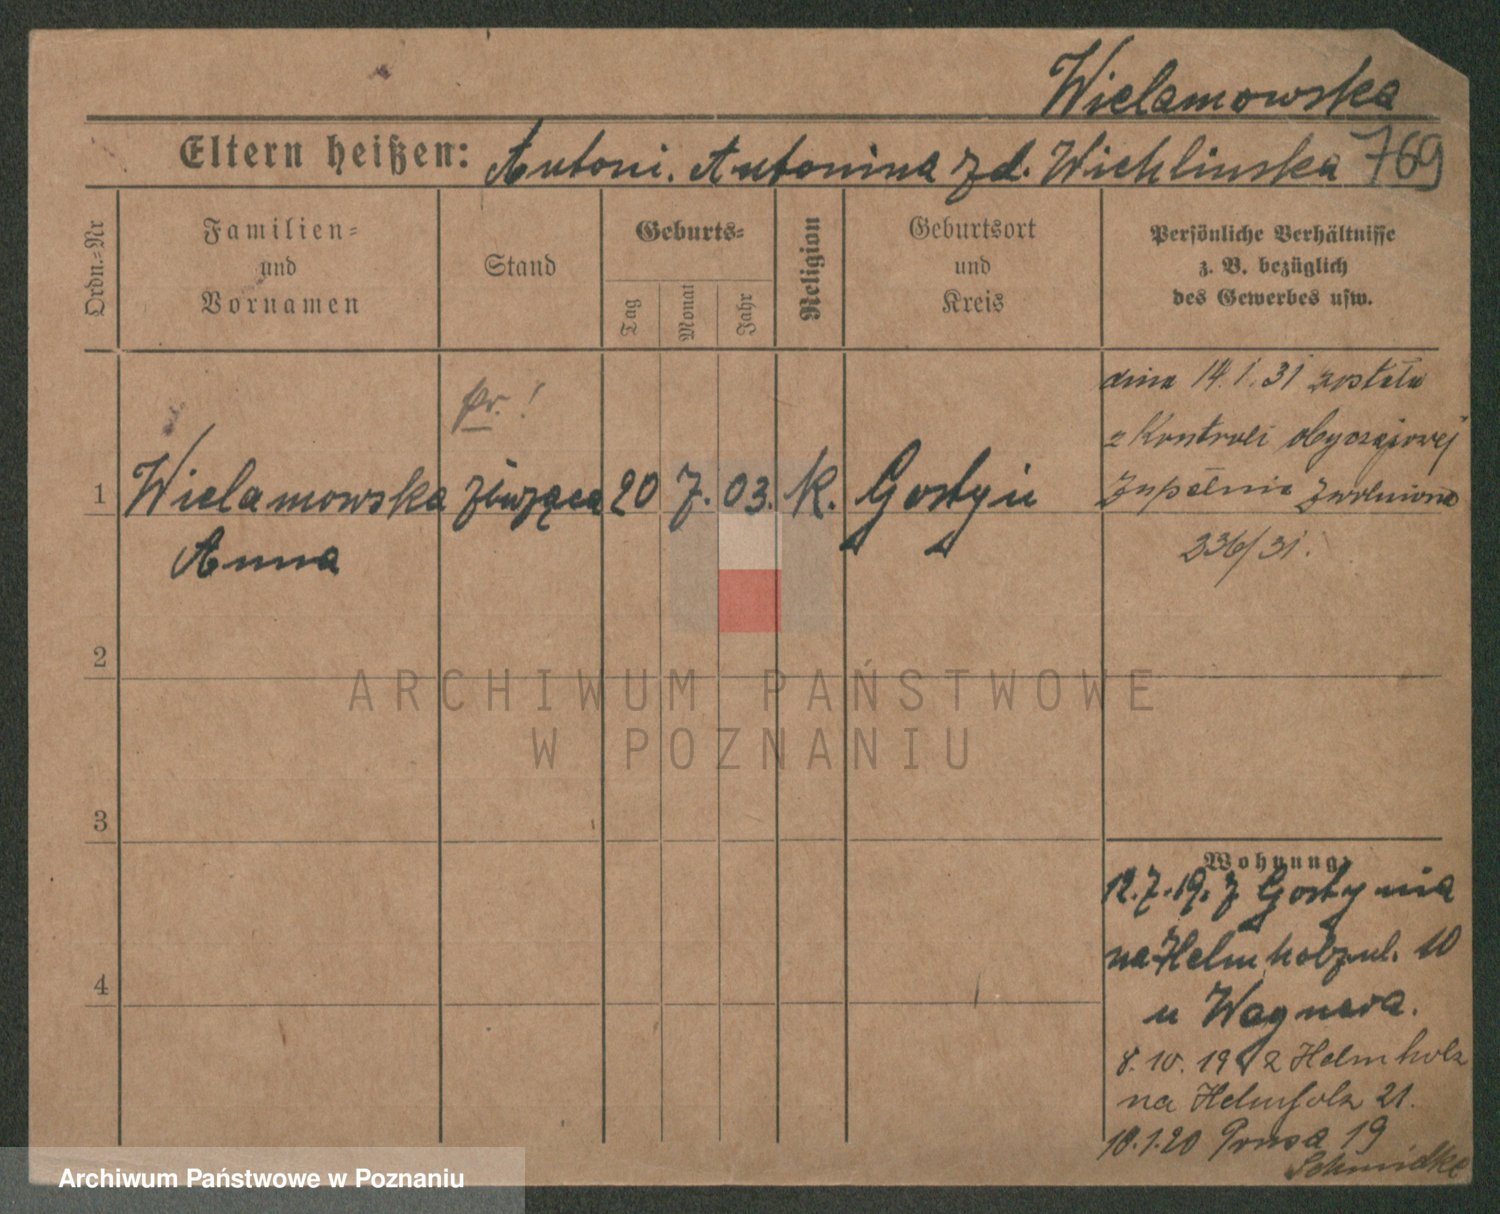 Wielamowska
Eltern heißen: Antoni. Antonina zd. Wichlinska 769
Ordn.-Nr
Familien-
und
Vornamen
Stand
Geburts-
Tag
Monat
Jahr
Religion
Geburtsort
und
Kreis
Persönliche Verhältnisse
z. B. bezüglich
des Gewerbes usw.
pr. !
dnia 14.1.31 została
z Kontroli obyczajowej
zupełnie zwolniona
236/31.
1 Wielamowska 20 7. 03. k. Gostyń
Anna
2
3
4
Wohnung
12.7.19. z Gostynia
na Helmholz ul. 10
u Wagnera.
8.10.19 z Helmholz
na Helmholz 21.
18.1.20 Prusa 19
Schmidke
ARCHIWUM PAŃSTWOWE
W POZNANIU
Archiwum Państwowe w Poznaniu